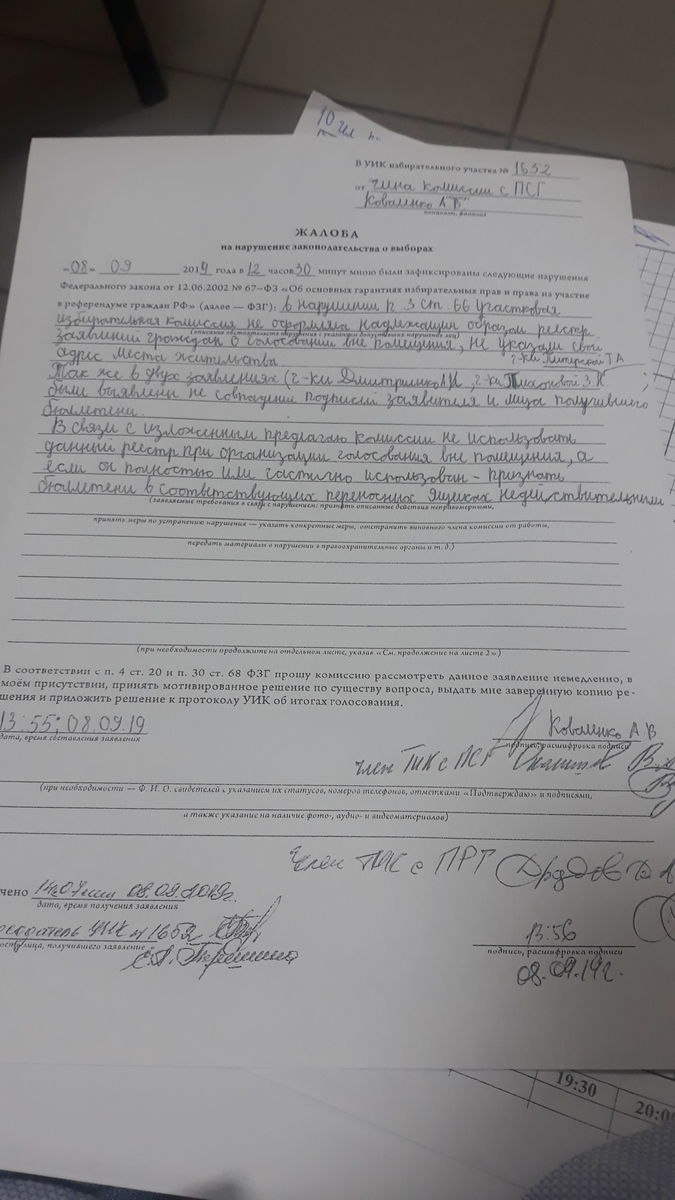 10 чел
В УИК избирательного участка № 1652
от члена комиссии с ПСГ
Коваленко А В
фамилия
ЖАЛОБА
на нарушение законодательства о выборах
«08» 09 2019 года в 12 часов 30 минут мною были зафиксированы следующие нарушения
Федерального закона от 12.06.2002 № 67-ФЗ «Об основных гарантиях избирательных прав и права на участие
в референдуме граждан РФ» (далее — ФЗГ): в нарушении п 3 ст. 66 Участковая
избирательная комиссия не оформила надлежащим образом реестр
(описание обстоятельств нарушения с указанием допустивших нарушение лиц)
заявлений граждан о голосовании вне помещения, не указали свой
адрес места жительства. г-ка Т А
Так же в двух заявлениях (г-ки , г-ки З К.
были выявлены не совпадение подписей заявителя и лица получившего
бюллетени.
В связи с изложенным предлагаю комиссии не использовать
данный реестр при организации голосования вне помещения, а
если он полностью или частично использован - признать
бюллетени в соответствующих переносных ящиках недействительными
(заявляемые требования в связи с нарушением: признать описанные действия неправомерными,
принять меры по устранению нарушения — указать конкретные меры, отстранить виновного члена комиссии от работы,
передать материалы о нарушении в правоохранительные органы и т. д.)
(при необходимости продолжите на отдельном листе, указав «См. продолжение на листе 2»)
В соответствии с п. 4 ст. 20 и п. 30 ст. 68 ФЗГ прошу комиссию рассмотреть данное заявление немедленно, в
моём присутствии, принять мотивированное решение по существу вопроса, выдать мне заверенную копию ре-
шения и приложить решение к протоколу УИК об итогах голосования.
13:55; 08.09.19 Коваленко А В
дата, время составления заявления подпись, расшифровка подписи
член ТИК с ПСГ
(при необходимости — Ф. И. О. свидетелей с указанием их статусов, номеров телефонов, отметками «Подтверждаю» и подписями,
а также указание на наличие фото-, аудио- и видеоматериалов)
Член ТИК с ПРГ
чено 08.09.2019г.
дата, время получения заявления
УИК № 1652 13:56
лица, получившего заявление подпись, расшифровка подписи
08.09.19г.
19:30